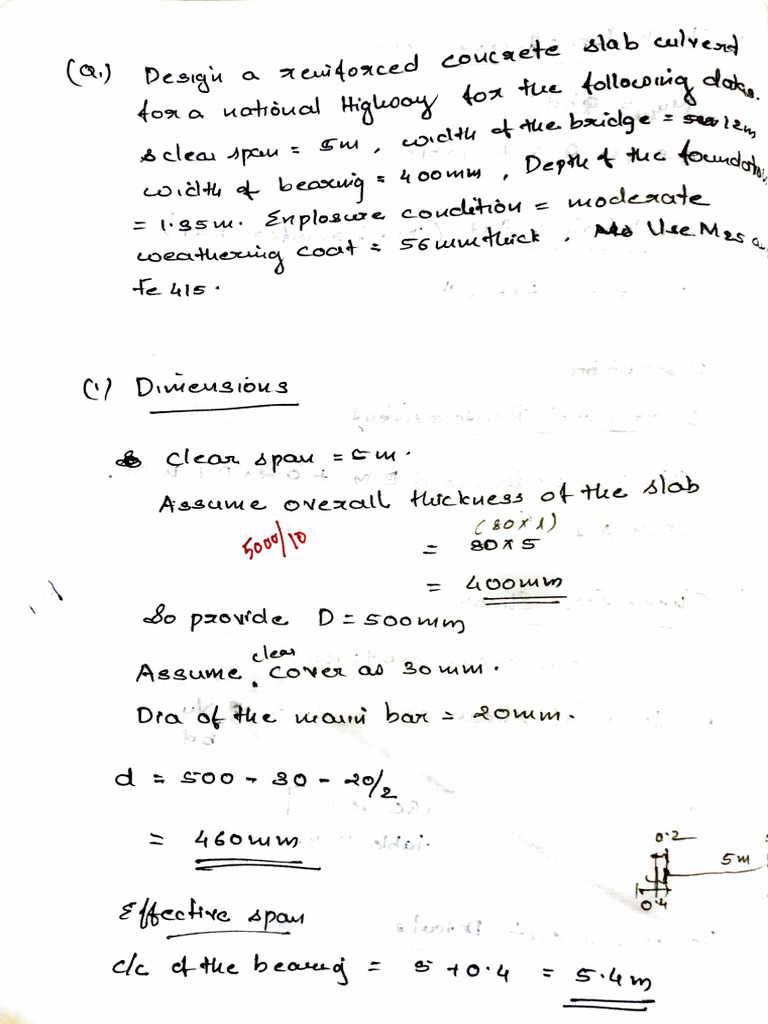 (Q.) Design a reinforced concrete slab culvert
for a national Highway for the following data.
clear span = 5m, width of the bridge = 12m
width of bearing = 400mm, Depth of the foundation
= 1.35m. Enplosure condition = moderate
weathering coat = 56mm thick. Use M25
Fe 415.
(1) Dimensions
clear span = 5m.
Assume overall thickness of the slab
(80x1)
5000/10 = 80x5
= 400mm
So provide D = 500mm
clear
Assume cover as 30mm.
Dia of the main bar = 20mm.
d = 500 - 30 - 20/2
= 460mm
0.2
5m
0.4
Effective span
c/c of the bearing = 5+0.4 = 5.4m